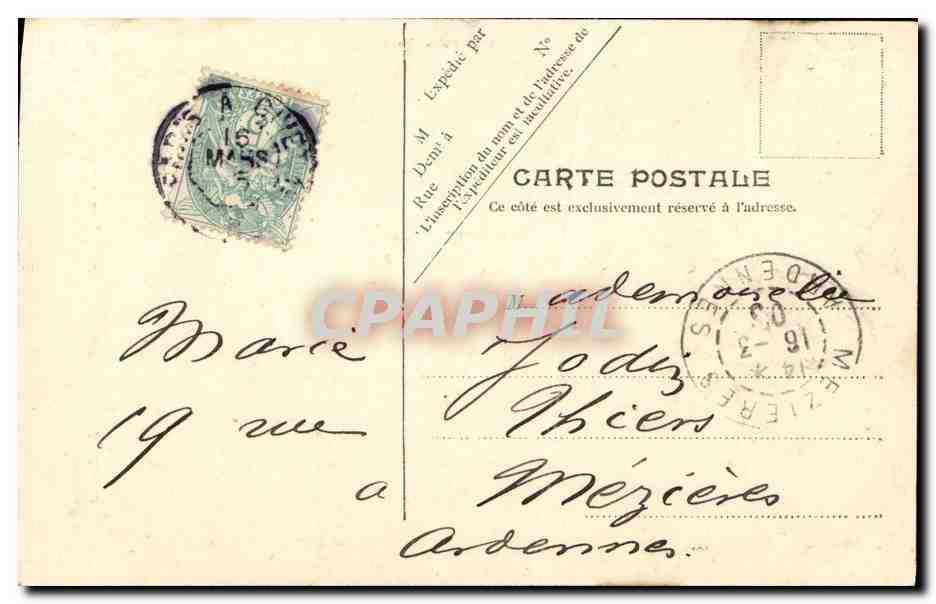 Expédié par
M
Demt à
Rue
N°
L'inscription du nom et de l'adresse de
l'expéditeur est facultative.
CARTE POSTALE
Ce côté est exclusivement réservé à l'adresse.
À GIVET
16
MARS
MEZIERES
ARDENNES
14 *
16 -3
05
CPAPHIL
M. ademoiselle
Marie Jodiz
19 rue Thiers
a Mézières
Ardennes.